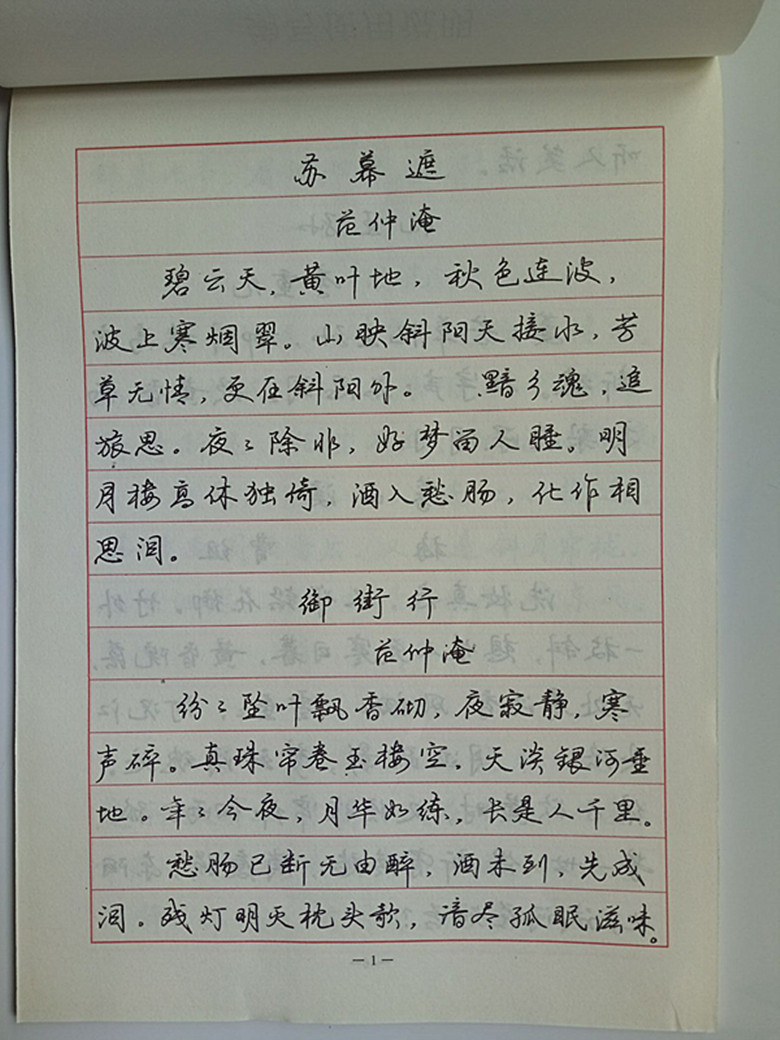 苏幕遮
范仲淹
碧云天，黄叶地，秋色连波，
波上寒烟翠。山映斜阳天接水，芳
草无情，更在斜阳外。 黯乡魂，追
旅思。夜〻除非，好梦留人睡。明
月楼高休独倚，酒入愁肠，化作相
思泪。
御街行
范仲淹
纷〻坠叶飘香砌，夜寂静，寒
声碎。真珠帘卷玉楼空，天淡银河垂
地。年〻今夜，月华如练，长是人千里。
愁肠已断无由醉，酒未到，先成
泪。残灯明灭枕头欹，谙尽孤眠滋味。
—1—